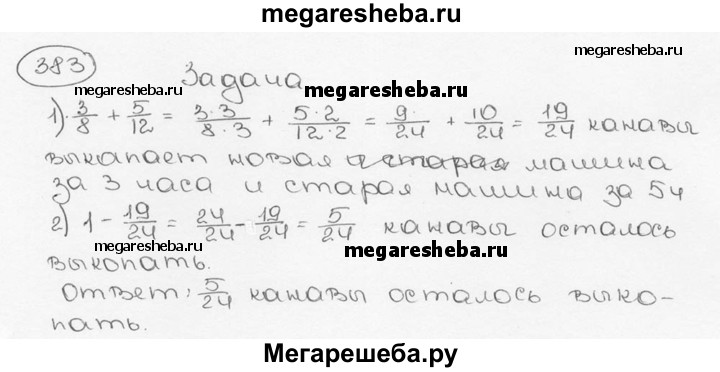 megaresheba.ru
383
megaresheba.ru
megaresheba.ru
Задача
megaresheba.ru
1) 3/8 + 5/12 = 3·3/8·3 + 5·2/12·2 = 9/24 + 10/24 = 19/24 канавы
выкапает новая и старая машина
за 3 часа и старая машина за 5ч
2) 1 - 19/24 = 24/24 - 19/24 = 5/24 канавы осталось
megaresheba.ru
megaresheba.ru
выкопать.
Ответ: 5/24 канавы осталось выко-
пать.
Мегарешеба.ру